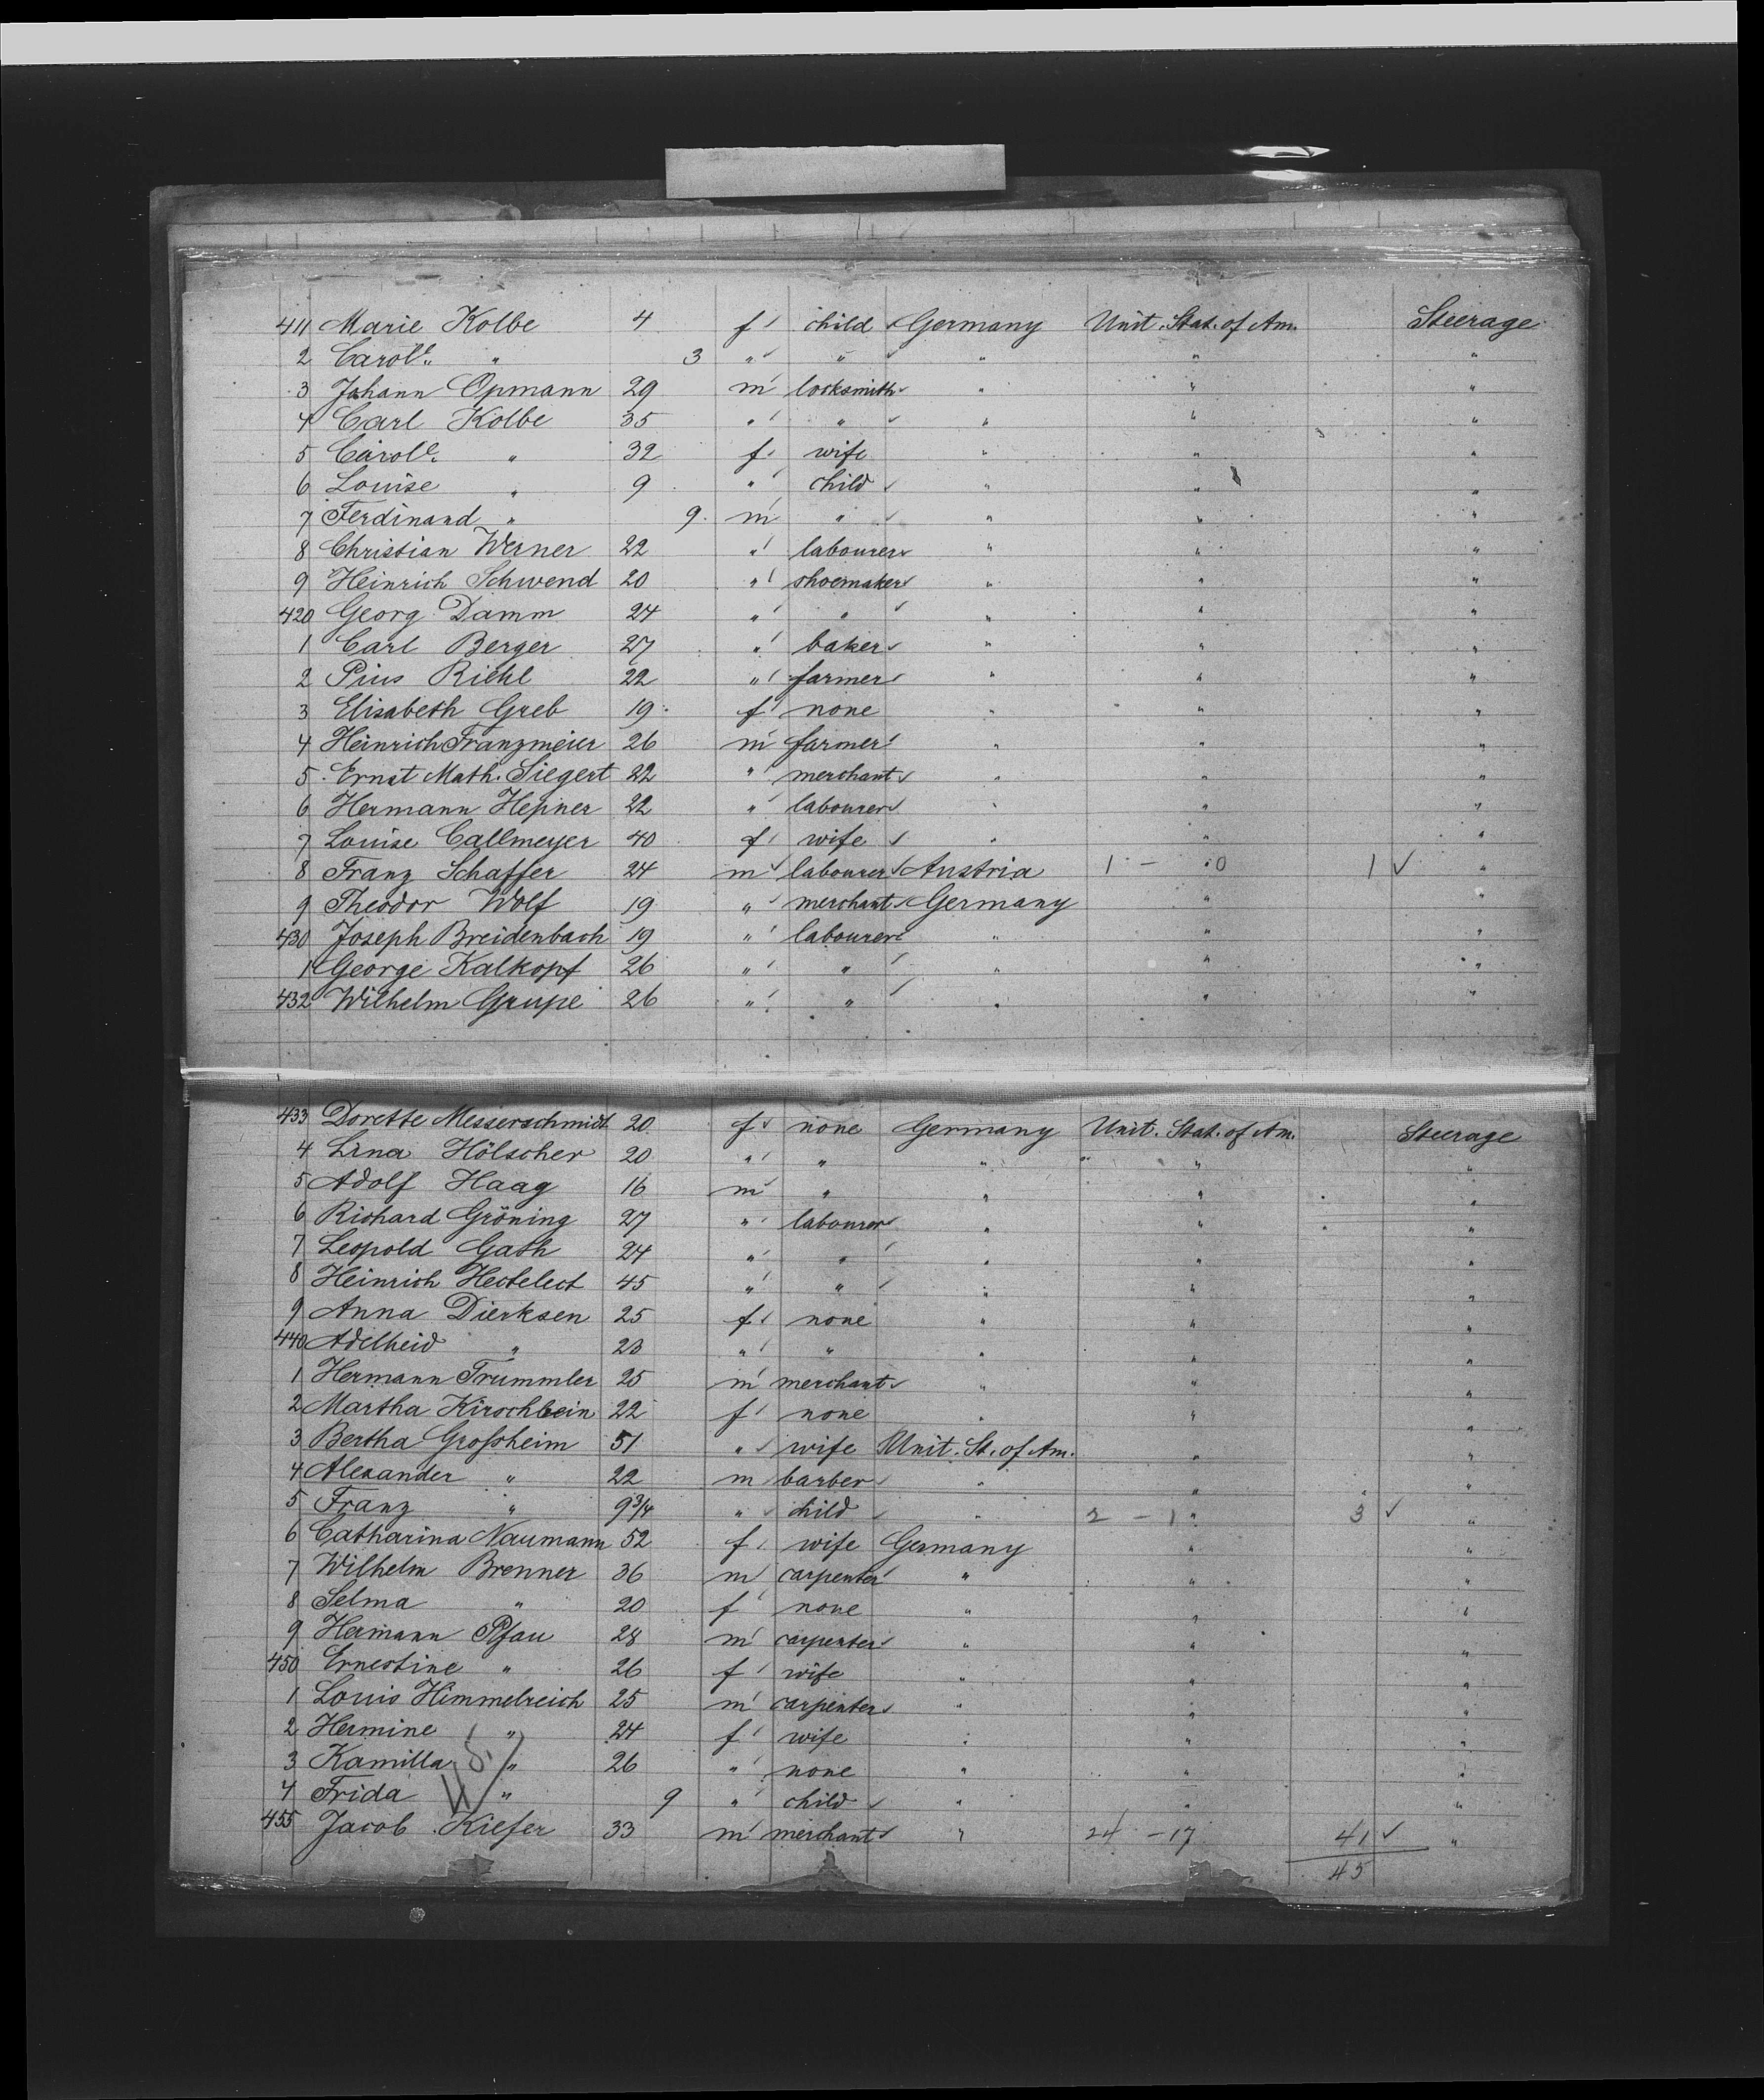 411 Marie Kolbe 4 f child Germany Unit. Stat. of Am. Steerage
2 Carol^e. " 3 " " " " "
3 Johann Opmann 29 m locksmith " " "
4 Carl Kolbe 35 " " " " "
5 Carol^e. " 32 f wife " " "
6 Louise " 9 " child " " "
7 Ferdinand " 9. m " " " "
8 Christian Werner 22 " labourer " " "
9 Heinrich Schwend 20 " shoemaker " " "
420 Georg Damm 24 " " " " "
1 Carl Berger 27 " baker " " "
2 Pius Riehl 22 " farmer " " "
3 Elisabeth Greb 19 f none " " "
4 Heinrich Franzmeier 26 m farmer " " "
5 Ernst Math. Siegert 22 " merchant " " "
6 Hermann Hepner 22 " labourer " " "
7 Louise Callmeyer 40 f wife " " "
8 Franz Schaffer 24 m labourer Austria 1 - 0 1 ✓ "
9 Theodor Wolf 19 " merchant Germany " "
430 Joseph Breidenbach 19 " labourer " " "
1 George Kalkopf 26 " " " " "
432 Wilhelm Grupe 26 " " " " "
433 Dorette Messerschmidt 20 f none Germany Unit. Stat. of Am. Steerage
4 Lina Hölscher 20 " " " " "
5 Adolf Haag 16 m " " " "
6 Richard Gröning 27 " labourer " " "
7 Leopold Gath 24 " " " " "
8 Heinrich 45 " " " " "
9 Anna Dierksen 25 f none " " "
440 Adelheid " 23 " " " " "
1 Hermann Trummler 25 m merchant " " "
2 Martha Kirschbein 22 f none " " "
3 Bertha Großheim 51 " wife Unit. St. of Am. " "
4 Alexander " 22 m barber " " "
5 Franz " 9 3/4 " child " 2 - 1 " 3 ✓ "
6 Catharina Naumann 52 f wife Germany " "
7 Wilhelm Brenner 36 m carpenter " " "
8 Selma " 20 f none " " "
9 Hermann Pfau 28 m carpenter " " "
450 Ernestine " 26 f wife " " "
1 Louis Himmelreich 25 m carpenter " " "
2 Hermine " 24 f wife " " "
3 Kamilla " 26 " none " " "
4 Frida " 9 " child " " "
455 Jacob Kiefer 33 m merchant " 24 - 17 41 ✓ "
45